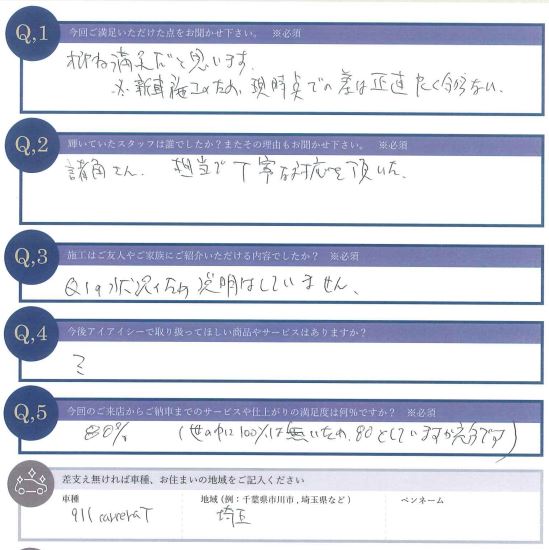 Q,1
今回ご満足いただけた点をお聞かせ下さい。 ※必須
おおむね満足だと思います。
※新車施工のため、現時点での差は正直よく分らない。
Q,2
輝いていたスタッフは誰でしたか？またその理由もお聞かせ下さい。 ※必須
諸角さん、 担当で丁寧な対応を頂いた。
Q,3
施工はご友人やご家族にご紹介いただける内容でしたか？ ※必須
Q1の状況のため説明はしていません。
Q,4
今後アイアイシーで取り扱ってほしい商品やサービスはありますか？
Q,5
今回のご来店からご納車までのサービスや仕上がりの満足度は何%ですか？ ※必須
80% (世の中に100%は無いため、80としていますが充分です)
差支え無ければ車種、お住まいの地域をご記入ください
車種 地域 (例：千葉県市川市, 埼玉県など) ペンネーム
911 carrera T 埼玉